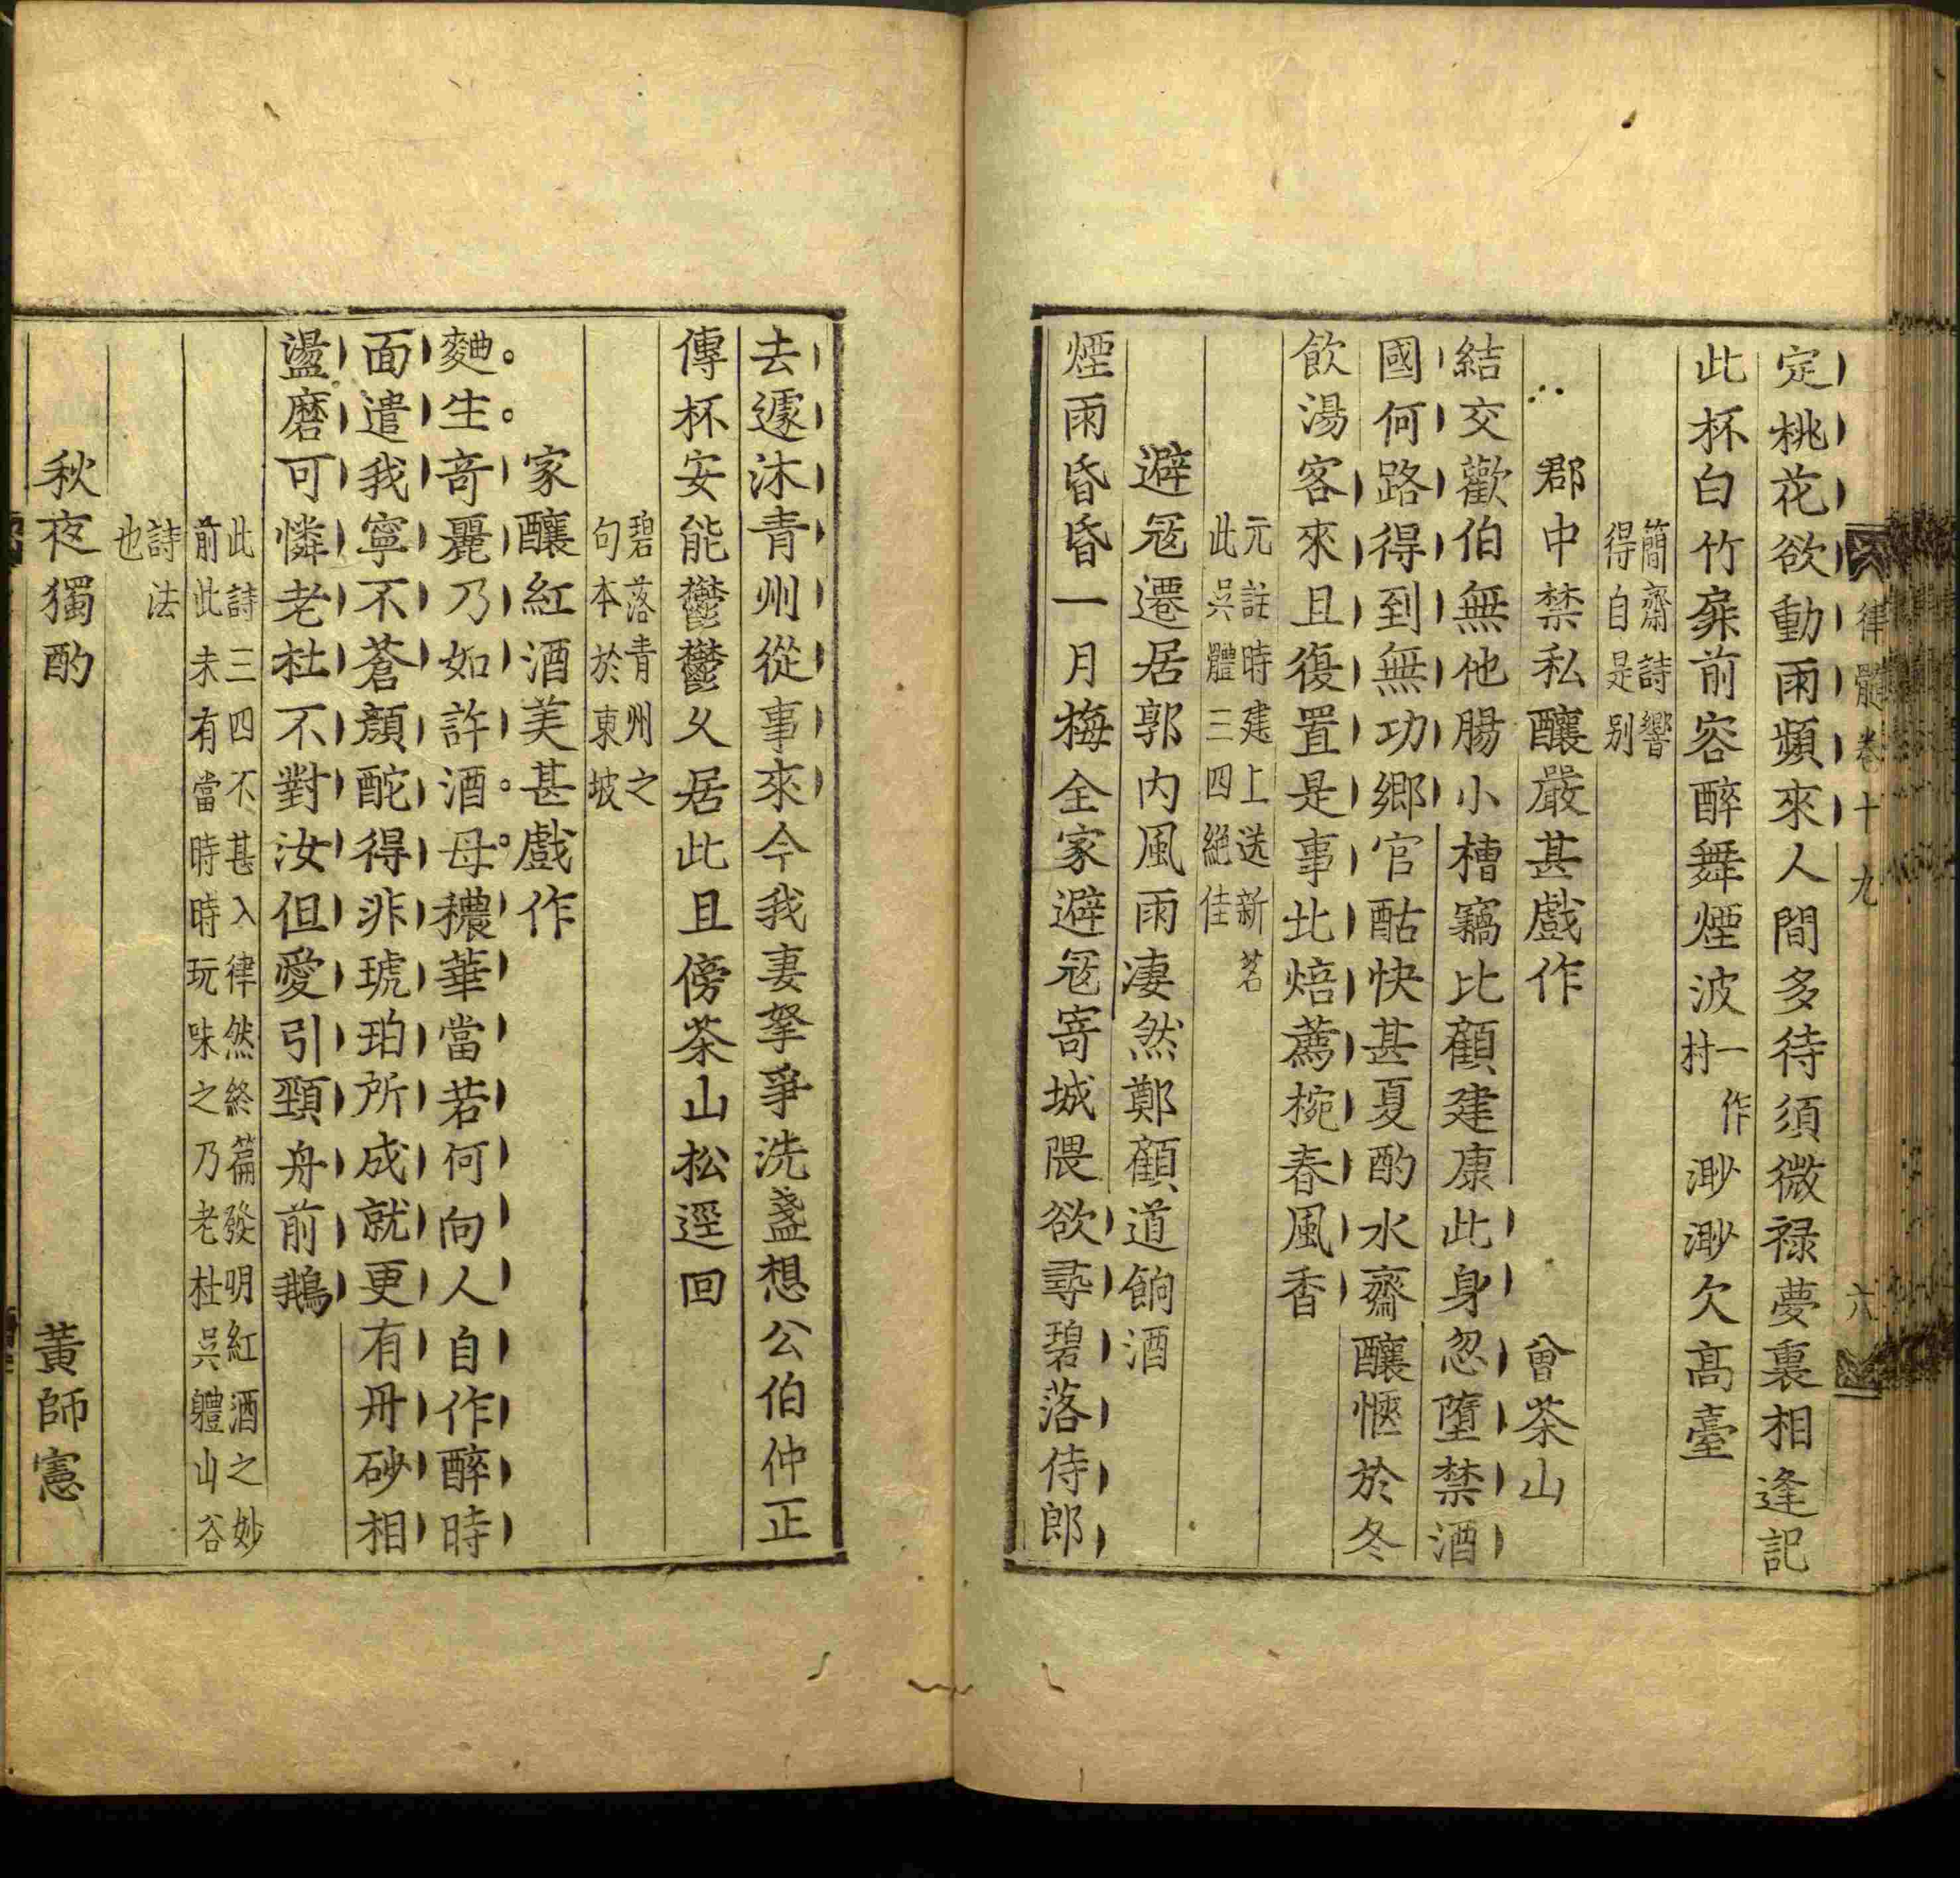 律髓卷十九 六
定桃花欲動雨頻來人間多待須微禄夢裏相逢記
此杯白竹扉前容醉舞煙波一作村渺渺欠高臺
簡齋詩響
得自是别
郡中禁私釀嚴甚戲作 曾茶山
結交歡伯無他腸小槽竊比顧建康此身忽墮禁酒
國何路得到無功鄉官酤快甚夏酌水齋釀愜於冬
飲湯客來且復置是事北焙薦椀春風香
元註時建上送新茗
此吳體三四絕佳
避冦遷居郭内風雨凄然鄭顧道餉酒
煙雨昏昏一月梅全家避冦寄城隈欲尋碧落侍郎
去遽沐青州從事來今我妻孥爭洗盞想公伯仲正
傳杯安能鬱鬱乆居此且傍茶山松逕回
碧落青州之
句本於東坡
家釀紅酒美甚戲作
麯生奇麗乃如許酒母穠華當若何向人自作醉時
面遣我寧不蒼顏酡得非琥珀所成就更有丹砂相
盪磨可憐老杜不對汝但愛引頸舟前鵝
此詩三四不甚入律然終篇發明紅酒之妙
前此未有當時時玩味之乃老杜吳軆山谷
詩法
也
秋夜獨酌 黃師憲